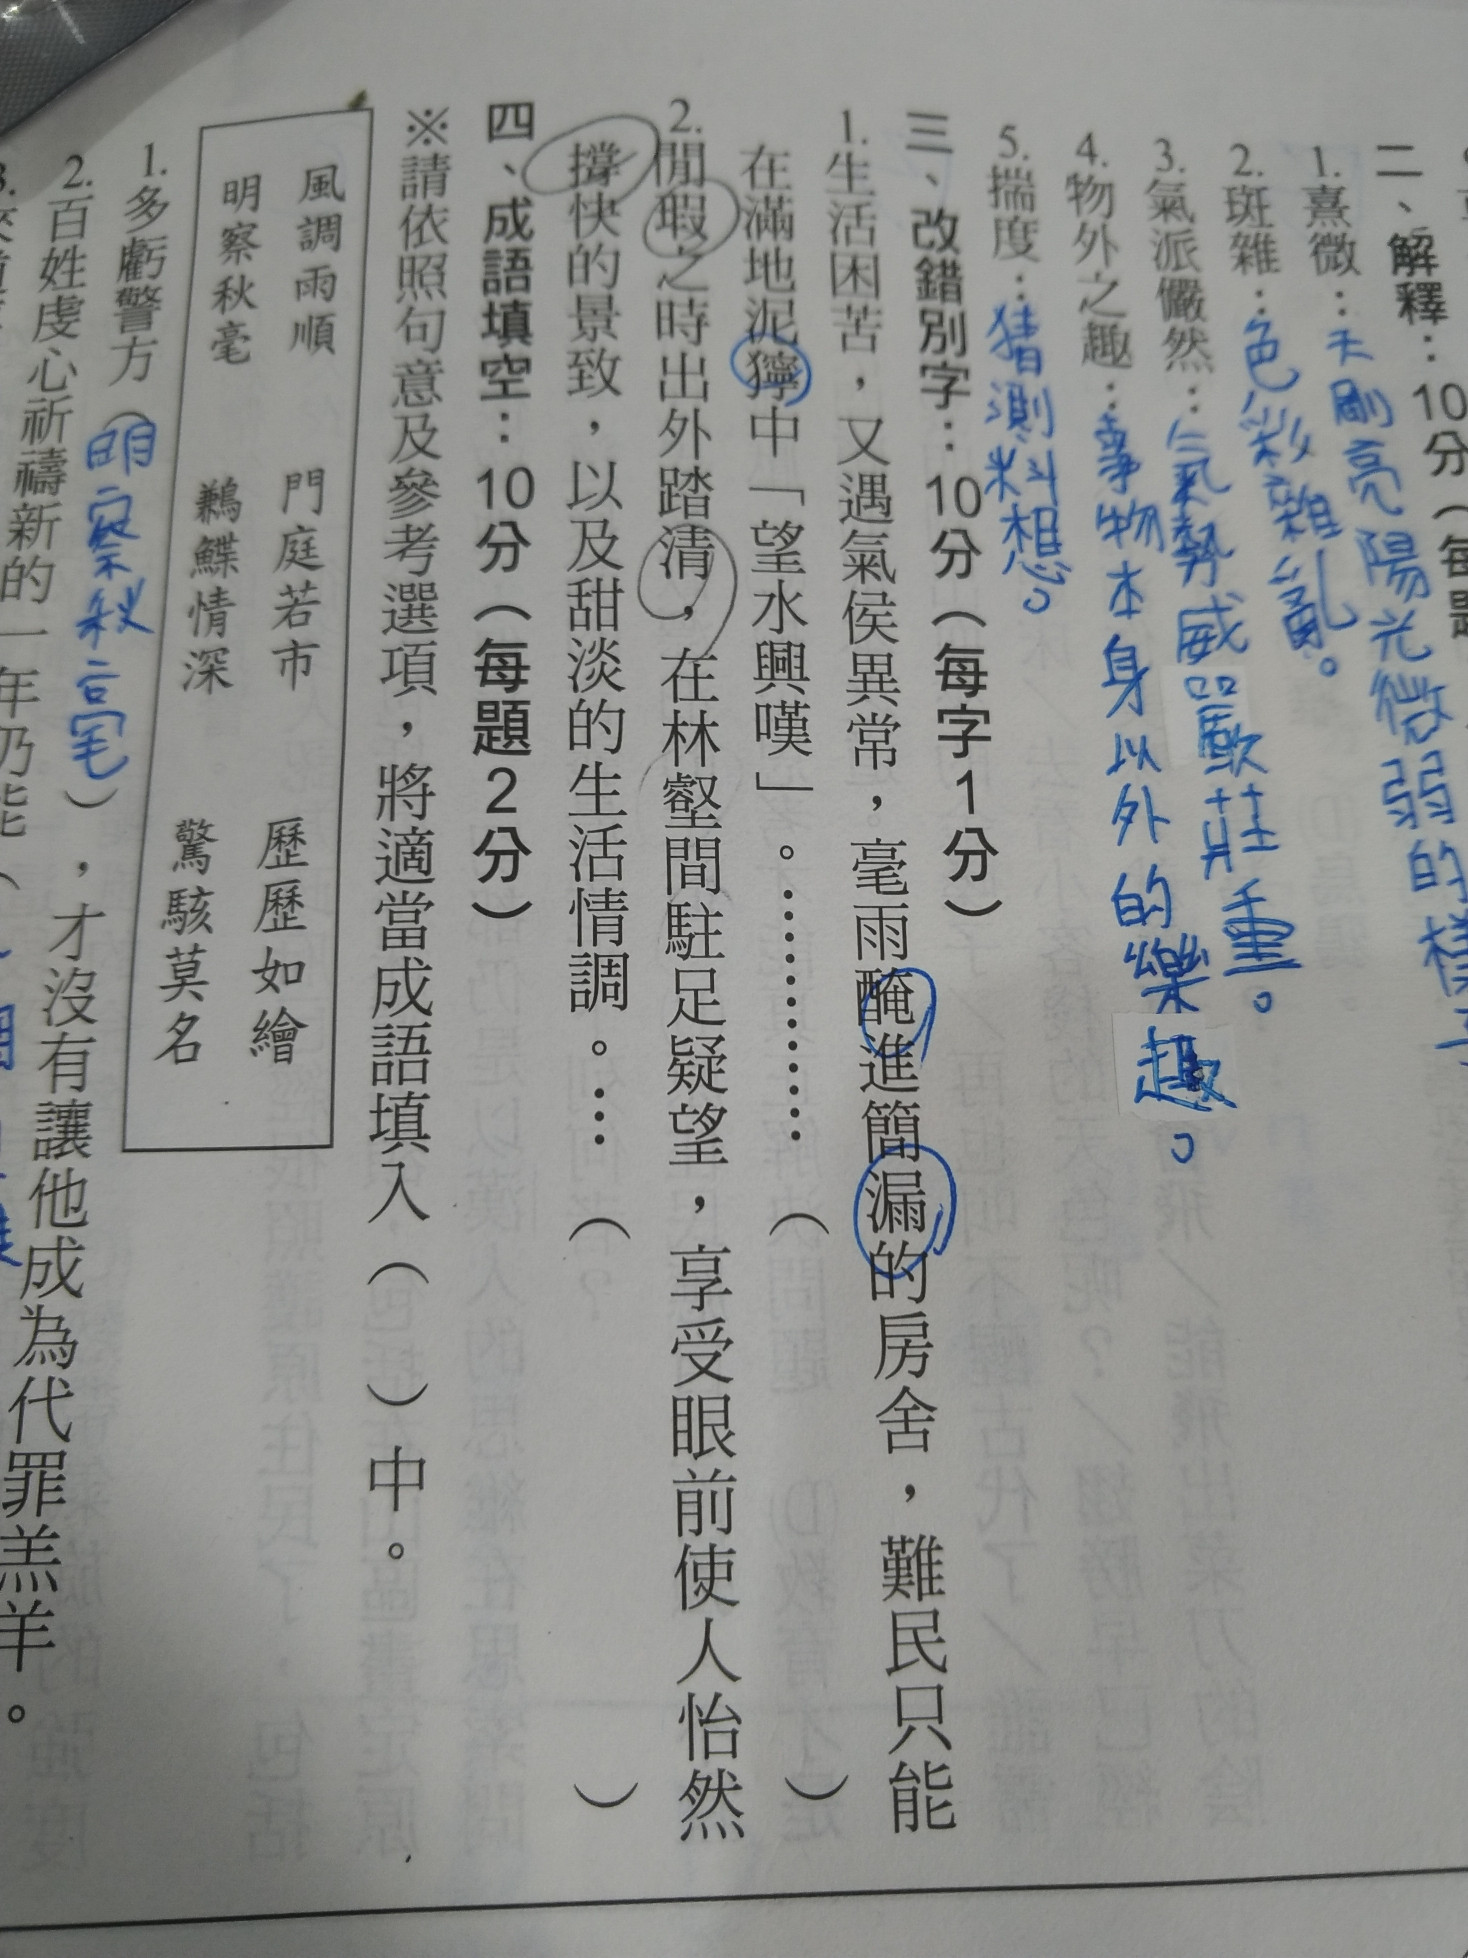 二、解釋：10分（每題
1.熹微：天剛亮陽光微弱的樣子
2.斑雜：色彩雜亂。
3.氣派儼然：氣勢威嚴莊重。
4.物外之趣：事物本身以外的樂趣。
5.揣度：猜測料想。
三、改錯別字：10分（每字1分）
1.生活困苦，又遇氣侯異常，毫雨醃進簡漏的房舍，難民只能
在滿地泥獰中「望水興嘆」。…………（ ）
2.閒瑕之時出外踏清，在林壑間駐足疑望，享受眼前使人怡然
撐快的景致，以及甜淡的生活情調。…（ ）
四、成語填空：10分（每題2分）
※請依照句意及參考選項，將適當成語填入（ ）中。
風調雨順 門庭若市 歷歷如繪
明察秋毫 鶼鰈情深 驚駭莫名
1.多虧警方（明察秋毫），才沒有讓他成為代罪羔羊。
2.百姓虔心祈禱新的一年仍能（